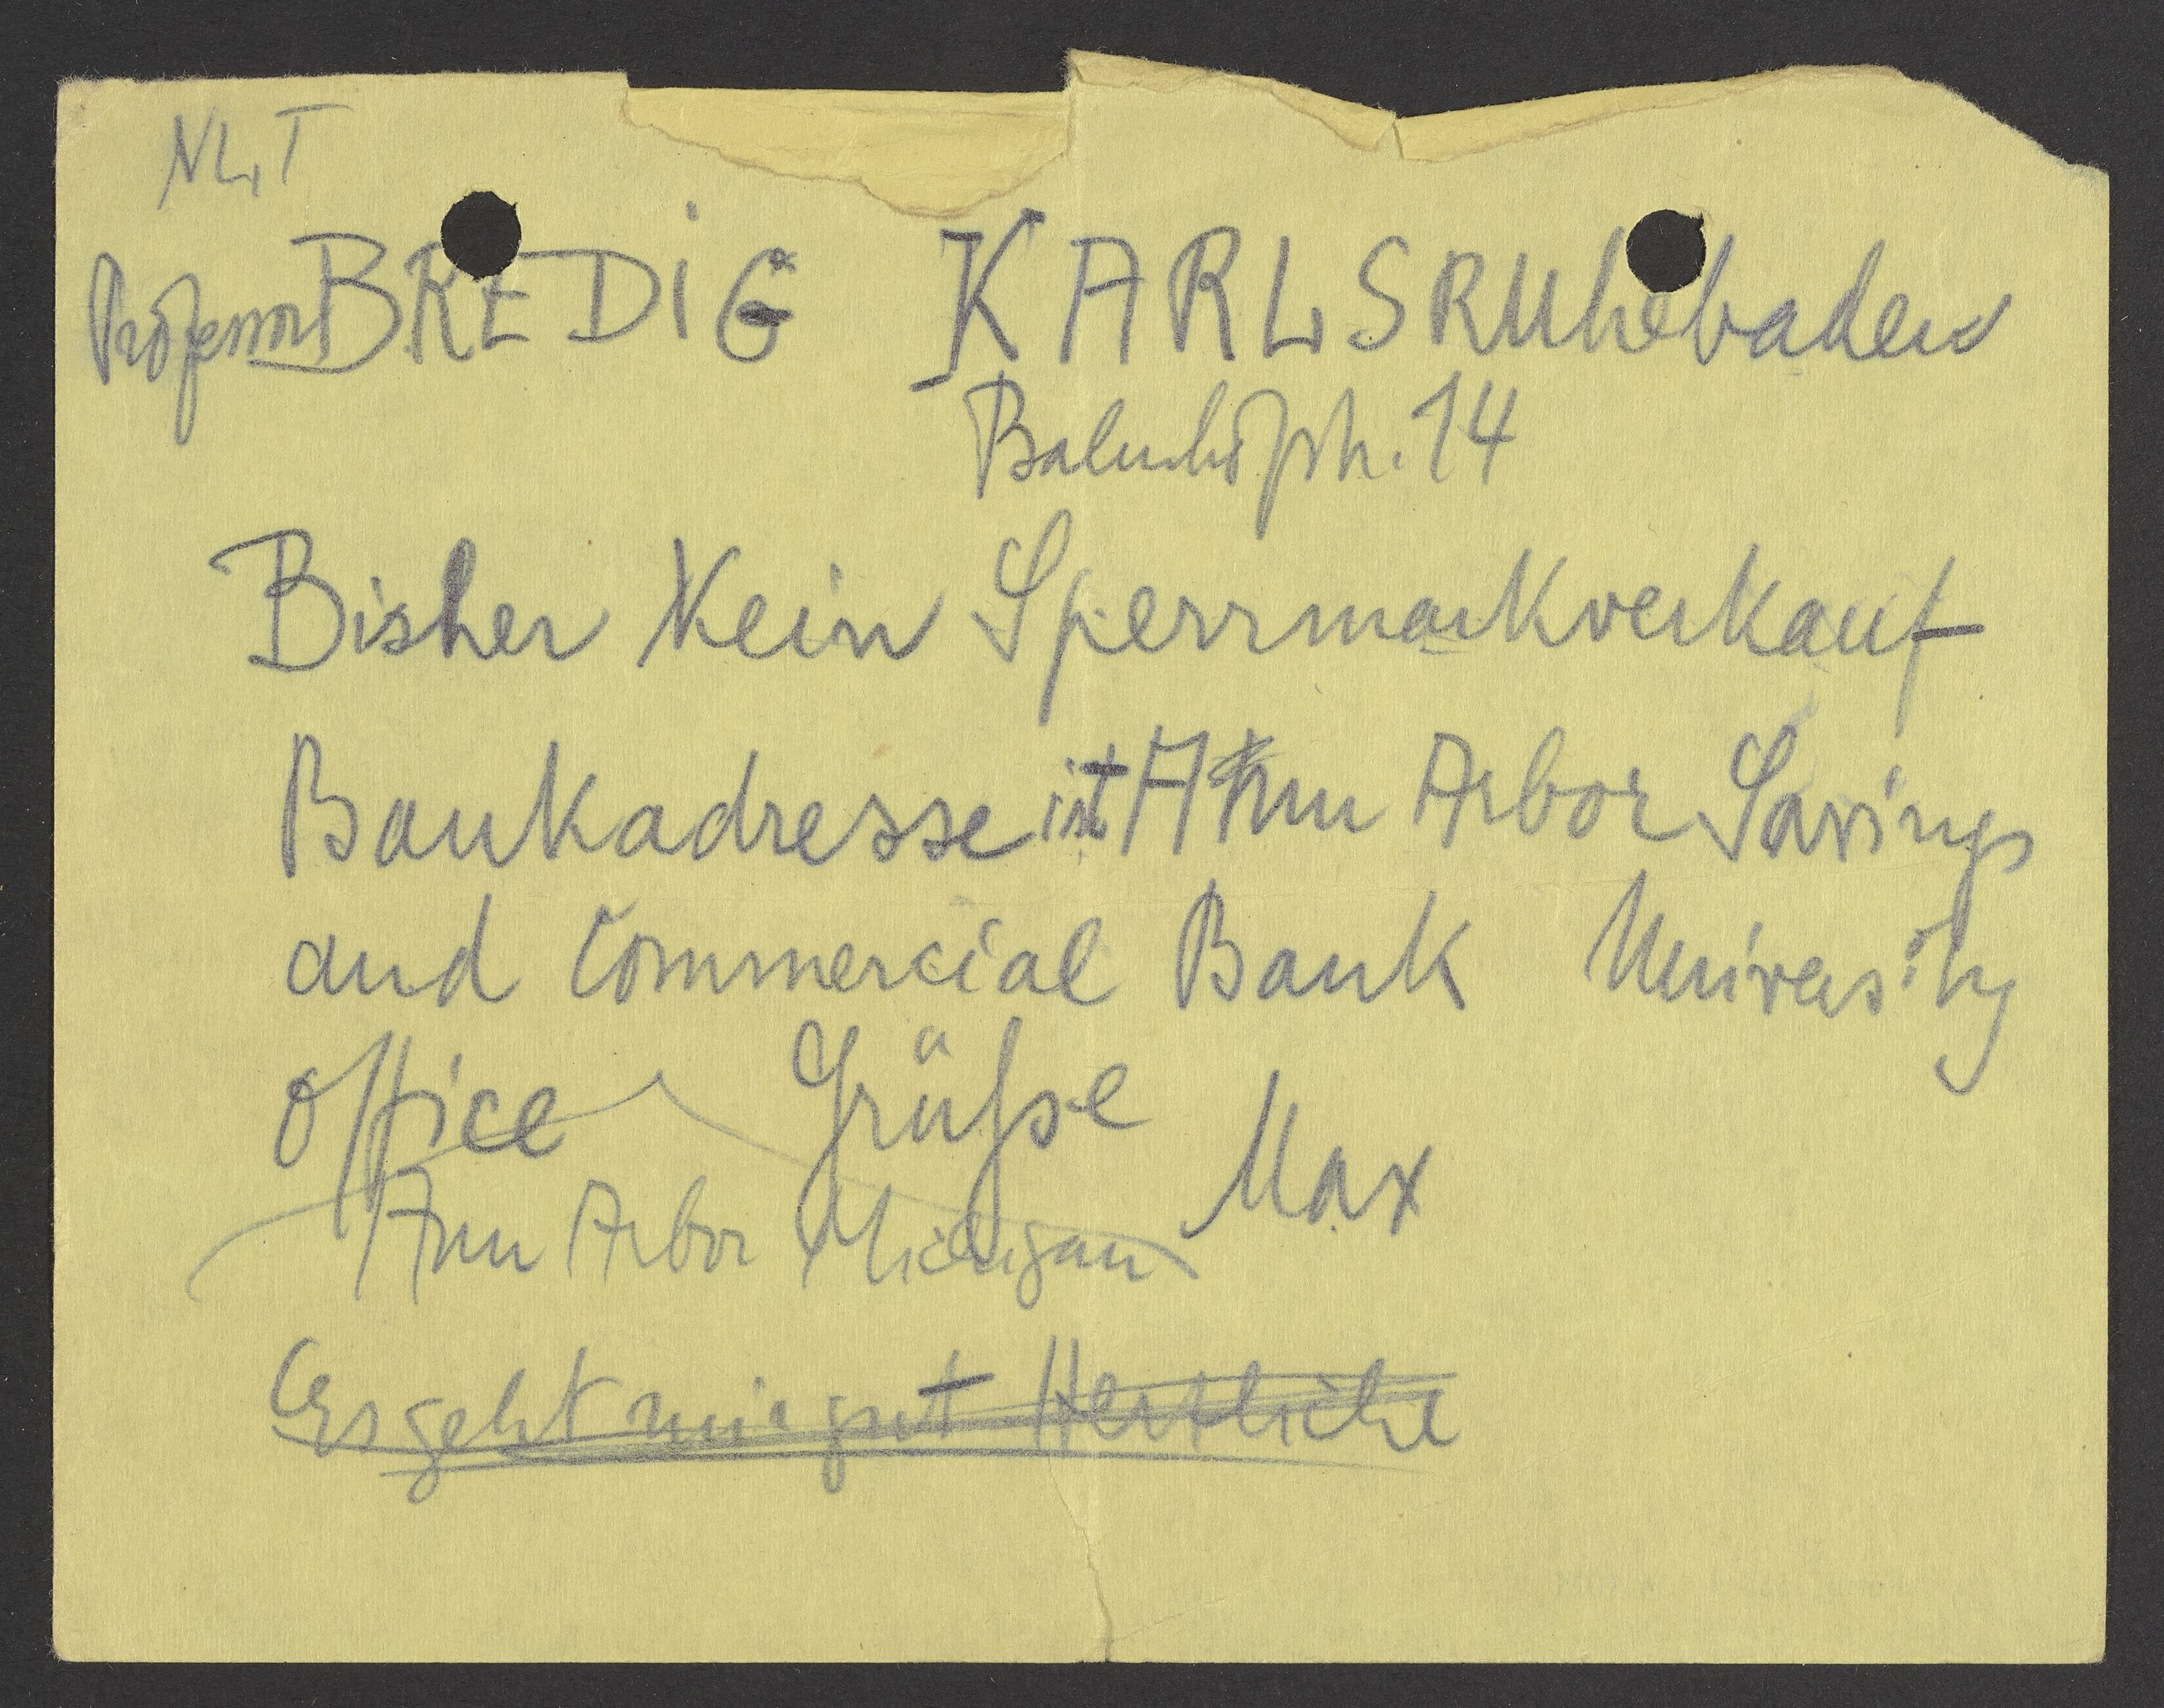 NLT
Professor BREDiG KARLSRUhebaden
Bahnhofstr. 14
Bisher Kein Sperrmarkverkauf
Bankadresse ist Ann Arbor Savings
and Commercial Bank University
Office Grüße
Max
Ann Arbor Michigan
Es geht mir gut Herzliche